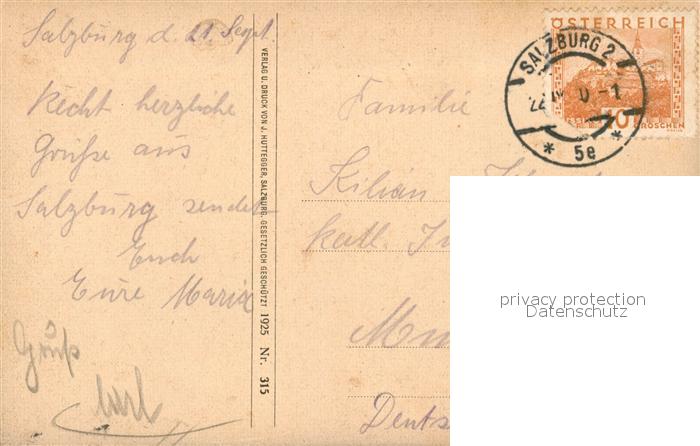 Salzburg d. 21 Sept.
Recht herzliche
Grüße aus
Salzburg sendet
Euch
Eure Maria
Gruß
VERLAG U. DRUCK VON J. HUTTEGGER, SALZBURG. GESETZLICH GESCHÜTZT 1925 Nr. 315
ÖSTERREICH
GROSCHEN
SALZBURG 2
* 5e *
Familie
Kilian
kath.
privacy protection
Datenschutz